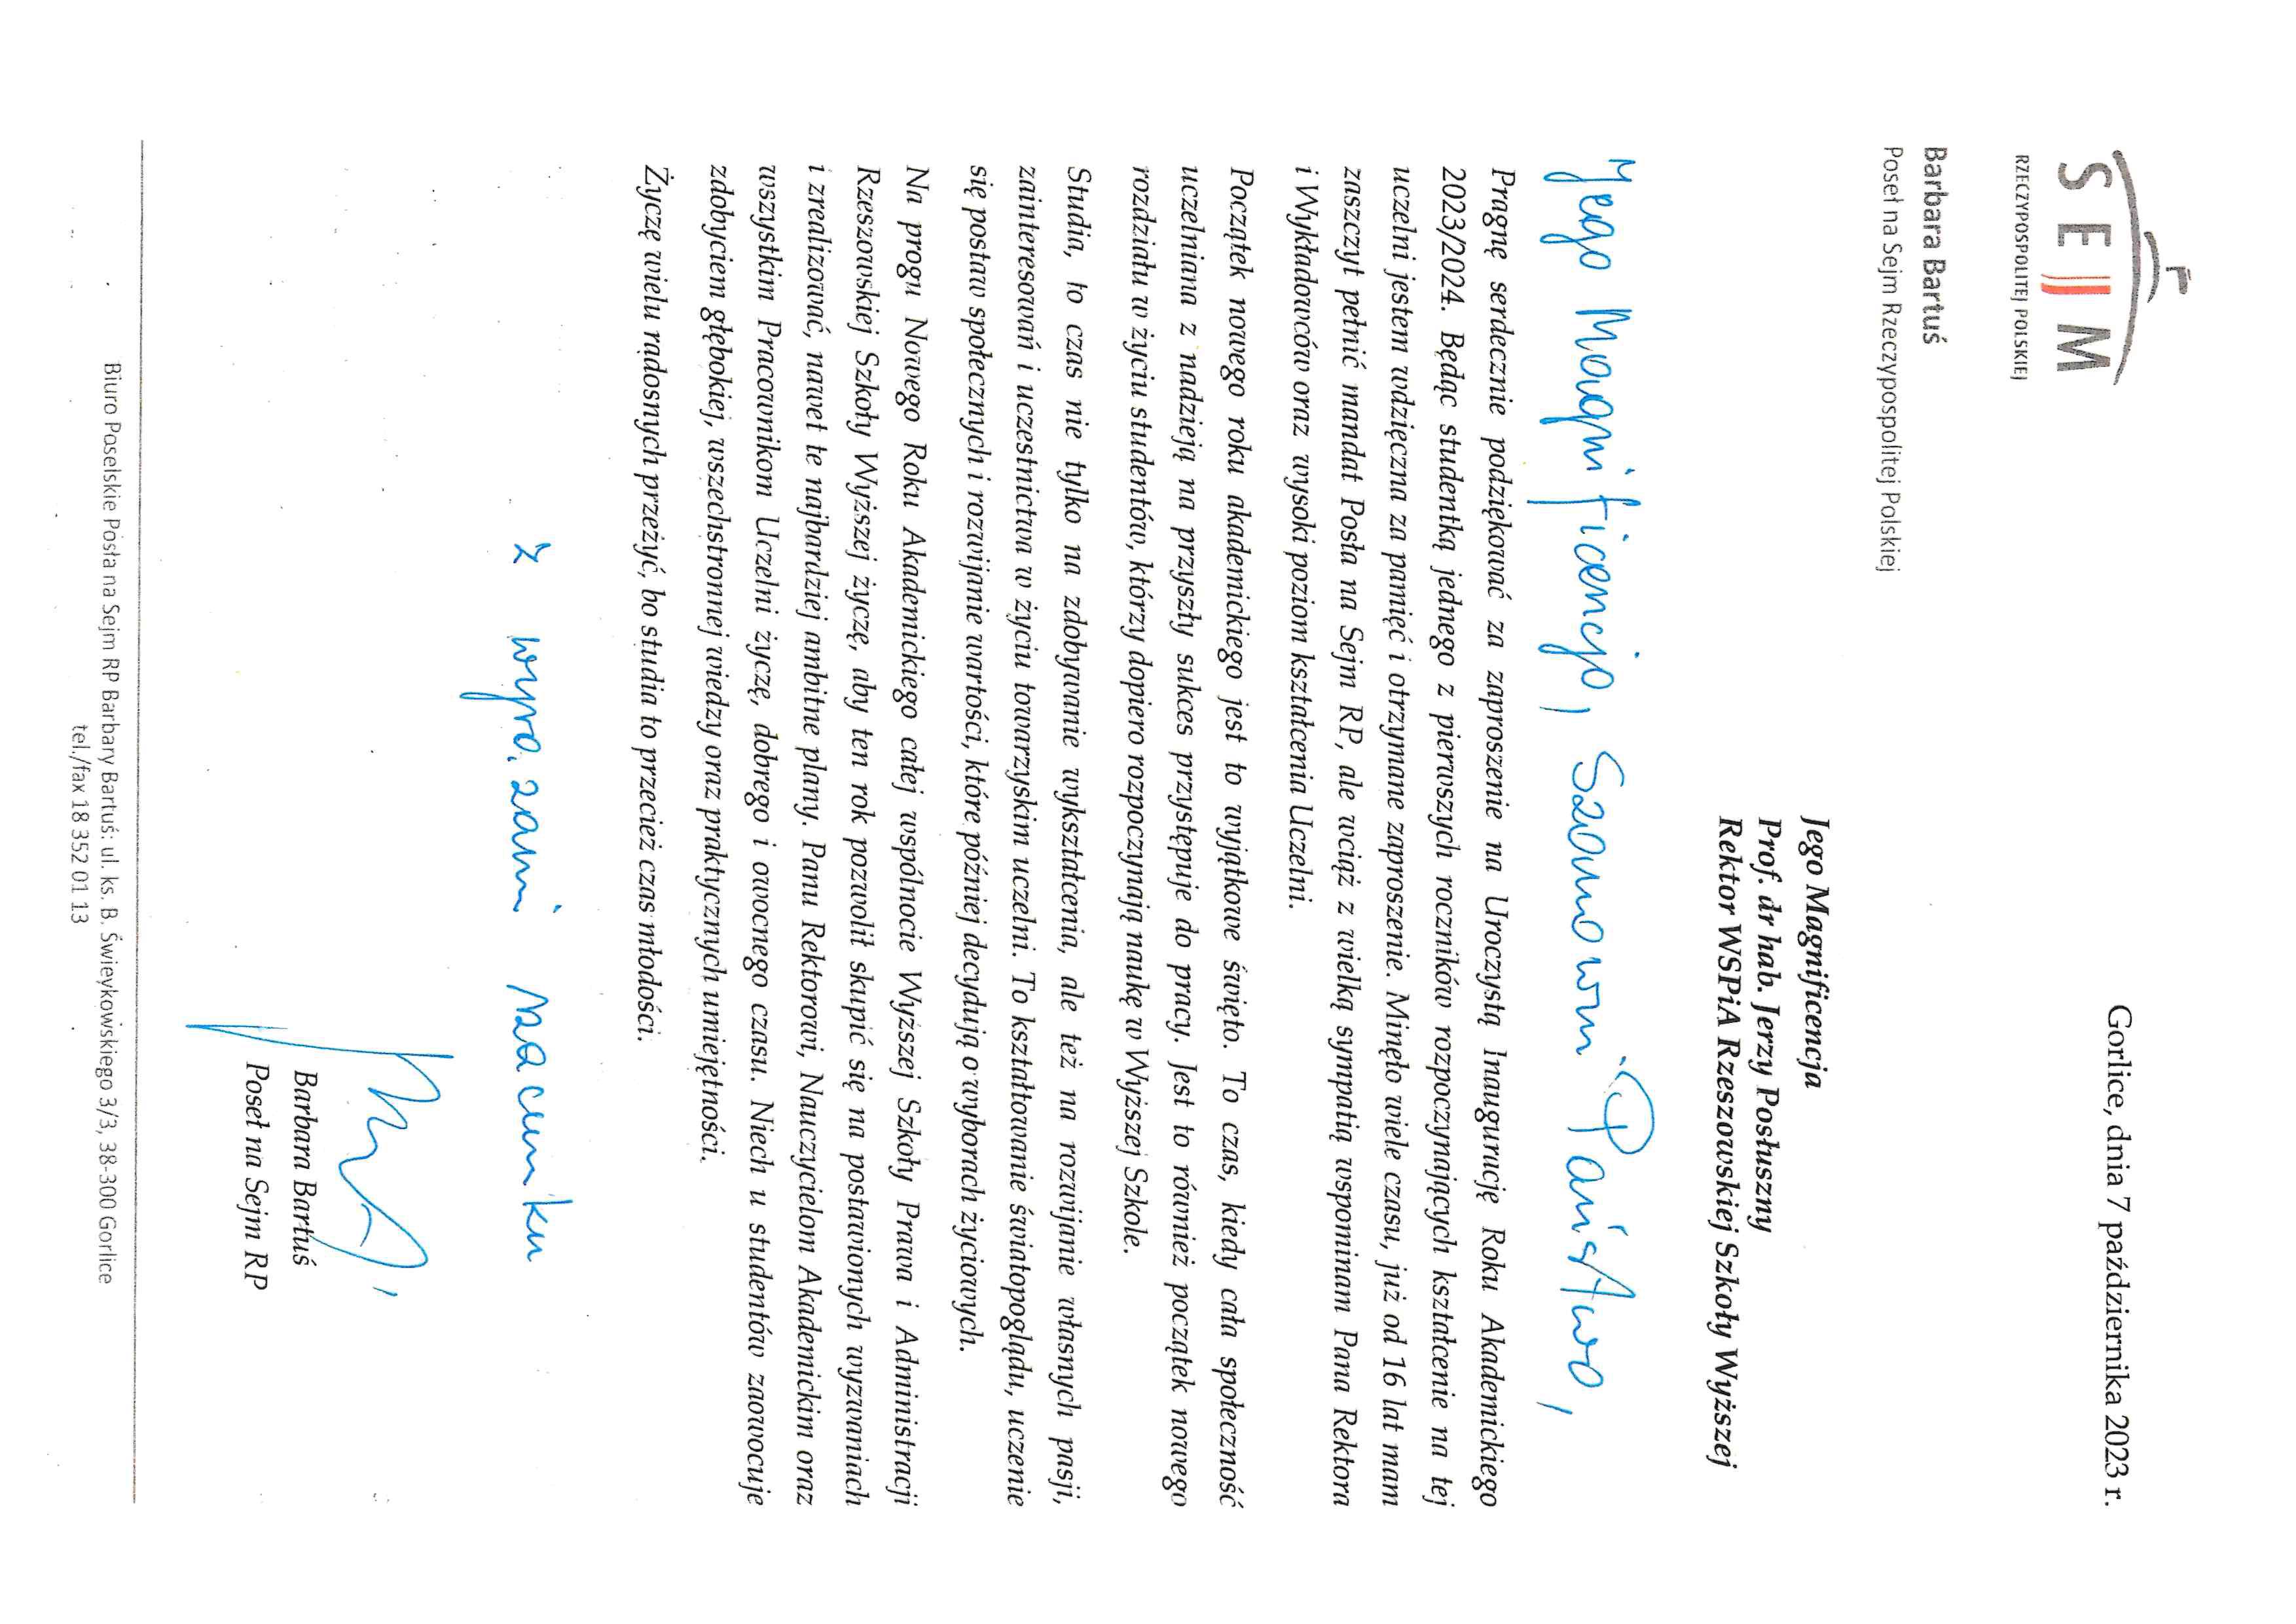 SEJM
RZECZYPOSPOLITEJ POLSKIEJ
Gorlice, dnia 7 października 2023 r.
Barbara Bartuś
Poseł na Sejm Rzeczypospolitej Polskiej
Jego Magnificencja
Prof. dr hab. Jerzy Posłuszny
Rektor WSPiA Rzeszowskiej Szkoły Wyższej
Jego Magnificencjo, Szanowni Państwo,
Pragnę serdecznie podziękować za zaproszenie na Uroczystą Inaugurację Roku Akademickiego
2023/2024. Będąc studentką jednego z pierwszych roczników rozpoczynających kształcenie na tej
uczelni jestem wdzięczna za pamięć i otrzymane zaproszenie. Minęło wiele czasu, już od 16 lat mam
zaszczyt pełnić mandat Posła na Sejm RP, ale wciąż z wielką sympatią wspominam Pana Rektora
i Wykładowców oraz wysoki poziom kształcenia Uczelni.
Początek nowego roku akademickiego jest to wyjątkowe święto. To czas, kiedy cała społeczność
uczelniana z nadzieją na przyszły sukces przystępuje do pracy. Jest to również początek nowego
rozdziału w życiu studentów, którzy dopiero rozpoczynają naukę w Wyższej Szkole.
Studia, to czas nie tylko na zdobywanie wykształcenia, ale też na rozwijanie własnych pasji,
zainteresowań i uczestnictwa w życiu towarzyskim uczelni. To kształtowanie światopoglądu, uczenie
się postaw społecznych i rozwijanie wartości, które później decydują o wyborach życiowych.
Na progu Nowego Roku Akademickiego całej wspólnocie Wyższej Szkoły Prawa i Administracji
Rzeszowskiej Szkoły Wyższej życzę, aby ten rok pozwolił skupić się na postawionych wyzwaniach
i zrealizować, nawet te najbardziej ambitne plany. Panu Rektorowi, Nauczycielom Akademickim oraz
wszystkim Pracownikom Uczelni życzę, dobrego i owocnego czasu. Niech u studentów zaowocuje
zdobyciem głębokiej, wszechstronnej wiedzy oraz praktycznych umiejętności.
Życzę wielu radosnych przeżyć, bo studia to przecież czas młodości.
z wyrazami szacunku
Barbara Bartuś
Poseł na Sejm RP
Biuro Poselskie Posła na Sejm RP Barbary Bartuś: ul. ks. B. Świeykowskiego 3/3, 38-300 Gorlice
tel./fax 18 352 01 13